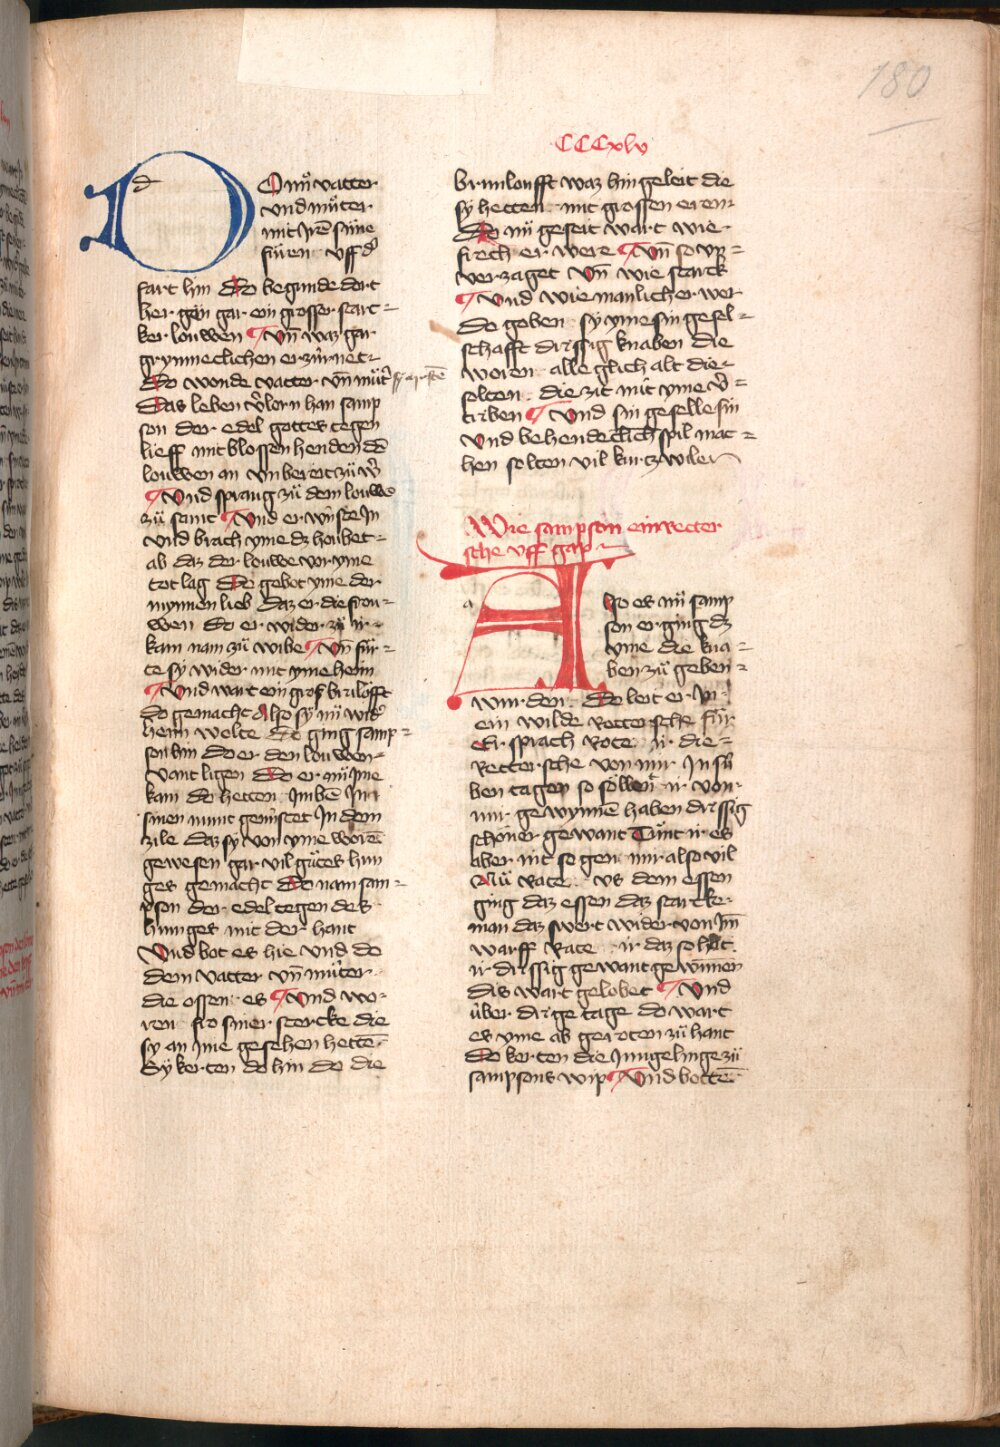 180
CCCxlv
DO nuͦ vatter
vnd muͤter
mit Jrē sune
fuͤren vff dˢ
fart hin Do begunde dort
her gan gar ein grosser starc=
ker louwen Vn̄ waz gar
grymmeclichen erzurnet
Do wonde vatter vn̄ muͤtˢ
Das leben vˢlorn han samp
son der edel gottes tegen
lieff mit blossen henden dē
louwen an vnbereit zuͤ wˢ
Vnd sprang zuͤ dem louwē
zuͤ samt Vnd er wuͤste Jn
vnd brach yme dz houbet
ab daz der louwe vor yme
tot lag Do gebot yme der
mynnen lieb Daz er die frou=
wen Do er wider zuͤ ir
kam nam zuͤ wibe Vn̄ fuͤr=
te sy wider mit yme heim
Vnd wart ein gros brulofft
do gemacht Also sy nuͦ widˢ
heim welte do ging samp=
son hin do er den louwen
vant ligen Do er nuͦ Jme
kam do hetten Jmben Jn
sinen munt genistet Jn dem
zile daz sy von yme worēt
gewesen gar vil guͤtes hun
ges gemacht Do nam sam=
pson der edel tegen des
hunges mit der hant
Vnd bot es hie vnd do
dem vatter vn̄ muͤter
die ossen es Vnd wo=
ren fro siner stercke die
sy an Jme gesehen hettē
Sy kerten do hin do die
brunloufft waz hin geleit die
sy hetten mit grossen eren
Do nuͦ geseit wart wie
frech er were Vn̄ so vn=
verzaget vn̄ wie starck
Vnd wie manlich er wer
do goben sy yme sin gesel=
schafft drissig knaben die
woren alle glich alt die
solten die zit mit yme vˢ=
triben Vnd sin geselle sin
Vnd behendeclich spil mac=
hen solten vil kurtzwilen
Wie sampson ein retter
sche vff gap
Also es nuͦ samp
son erging dz
yme die kna=
ben zuͤ geben=
wurden Do leit er Jn
ein wilde retter sche fuͤr
Er sprach Rote ir die
Retter sche von mir Jn sū
ben tagen so soͤllen ir von
mir gewynnen haben drissig
schoͤner gewant Tuͤnt ir es
aber nit so gen mir also vil
Nuͦ rate vs dem essen
ging daz essen daz starcke
man daz swert wider von Jm̄
warff Rate ir daz so hat
ir drissig gewant gewunnen
dis wart gelobet Vnd
über dirge tage do wart
es yme ab geroten zuͤ hant
Do kerten die Jungelinge zuͤ
sampsons wip Vnd bottē